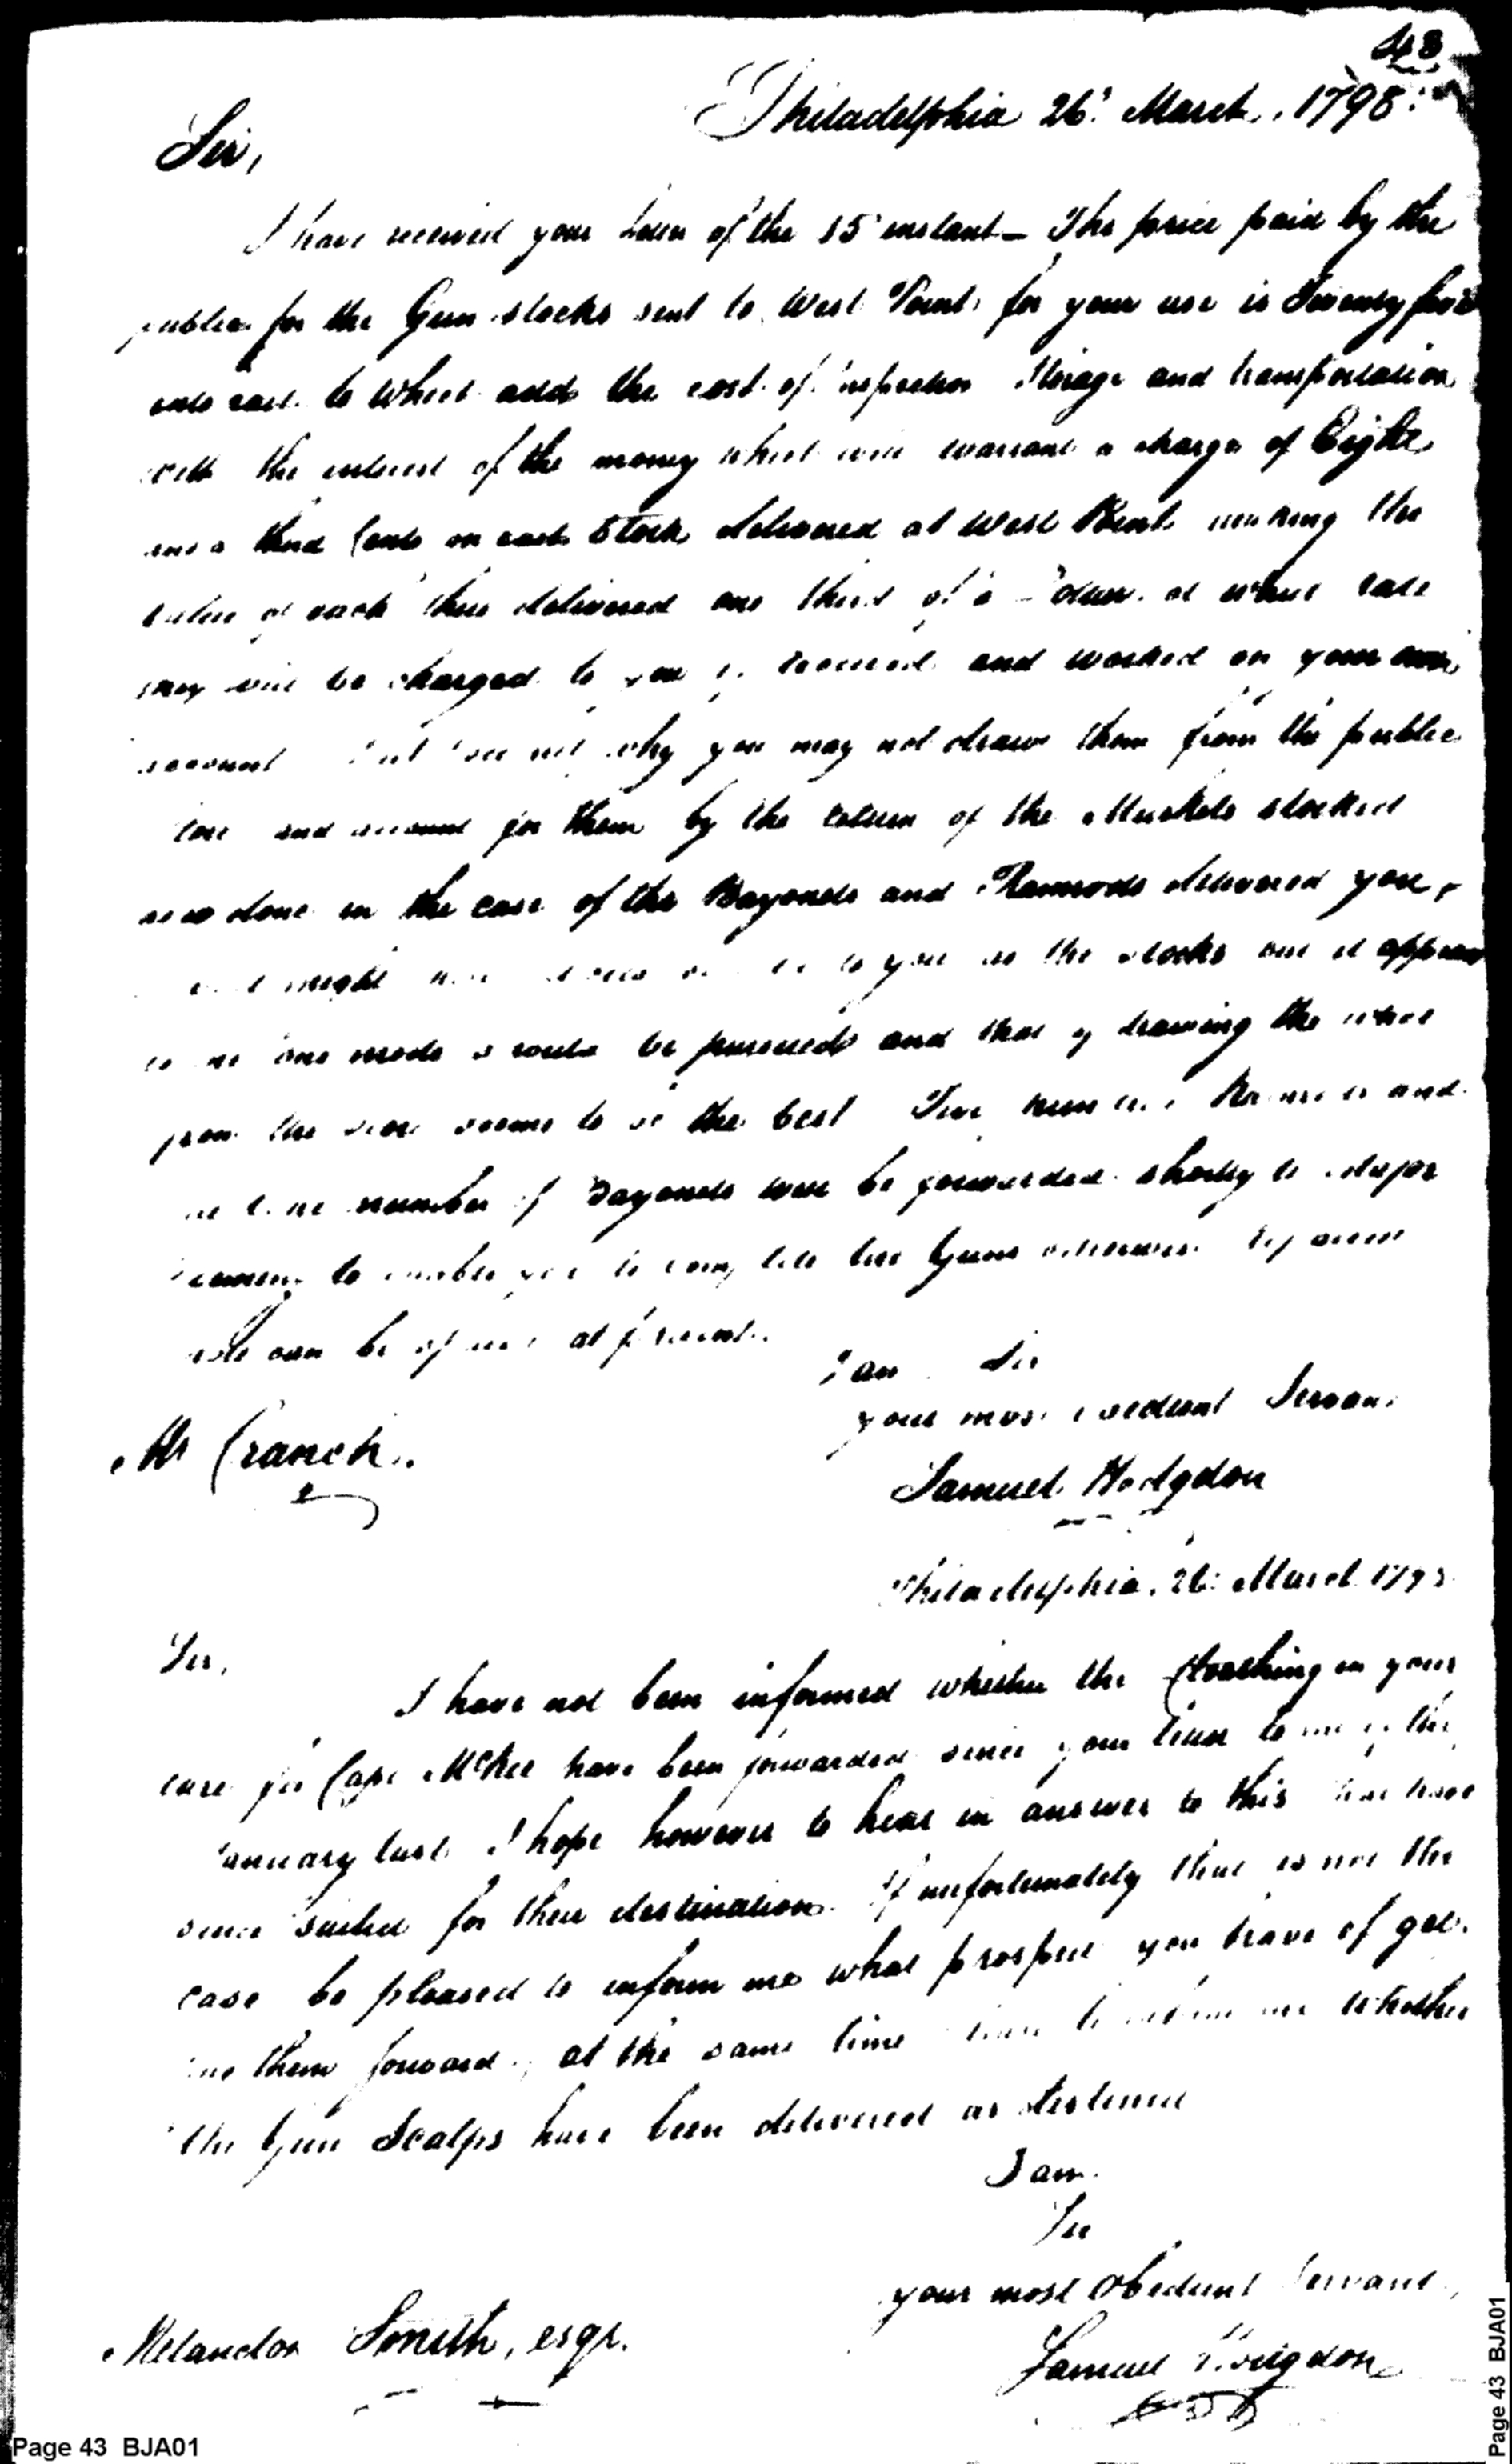 43
Philadelphia 26 March, 1798
Sir,
I have received your letter of the 15 instant — The price paid by the
public for the Gun stocks sent to West Point for your use is Twenty five
cents each to which add the cost of inspection Storage and transportation
with the interest of the money which will warrant a charge of Eight
and a third Cents on each Stock delivered at West Point making the
value of each thus delivered one third of a Dollar at which rate
they will be charged to you if received and worked on your own
account but I see not why you may not draw them from the public
store and account for them by the return of the Muskets stocked
as is done in the case of the Bayonets and Ramrods delivered you,
might to you as the stocks and it appears
to me one mode should be pursued and that of drawing the whole
from the store seems to be the best Ramrods and
the same number of Bayonets will be forwarded shortly to Major
to enable you to complete the Guns otherwise
can be at present.
I am Sir
your most obedient Servant
Mr Cranch.
Samuel Hodgdon
Philadelphia, 26 March 1798
Sir,
I have not been informed whether the Cloathing in your
care for Capt McKee have been forwarded since your letter to me of the
January last I hope however to hear in answer to this they have
since sailed for their destination. If unfortunately that is not the
case be pleased to inform me what prospect you have of get
ing them forward, at the same time to inform me whether
the Gun Scalps have been delivered as destined
I am.
Sir
your most Obedient Servant,
Melancton Smith, esqr.
Samuel Hodgdon
Page 43 BJA01
Page 43 BJA01